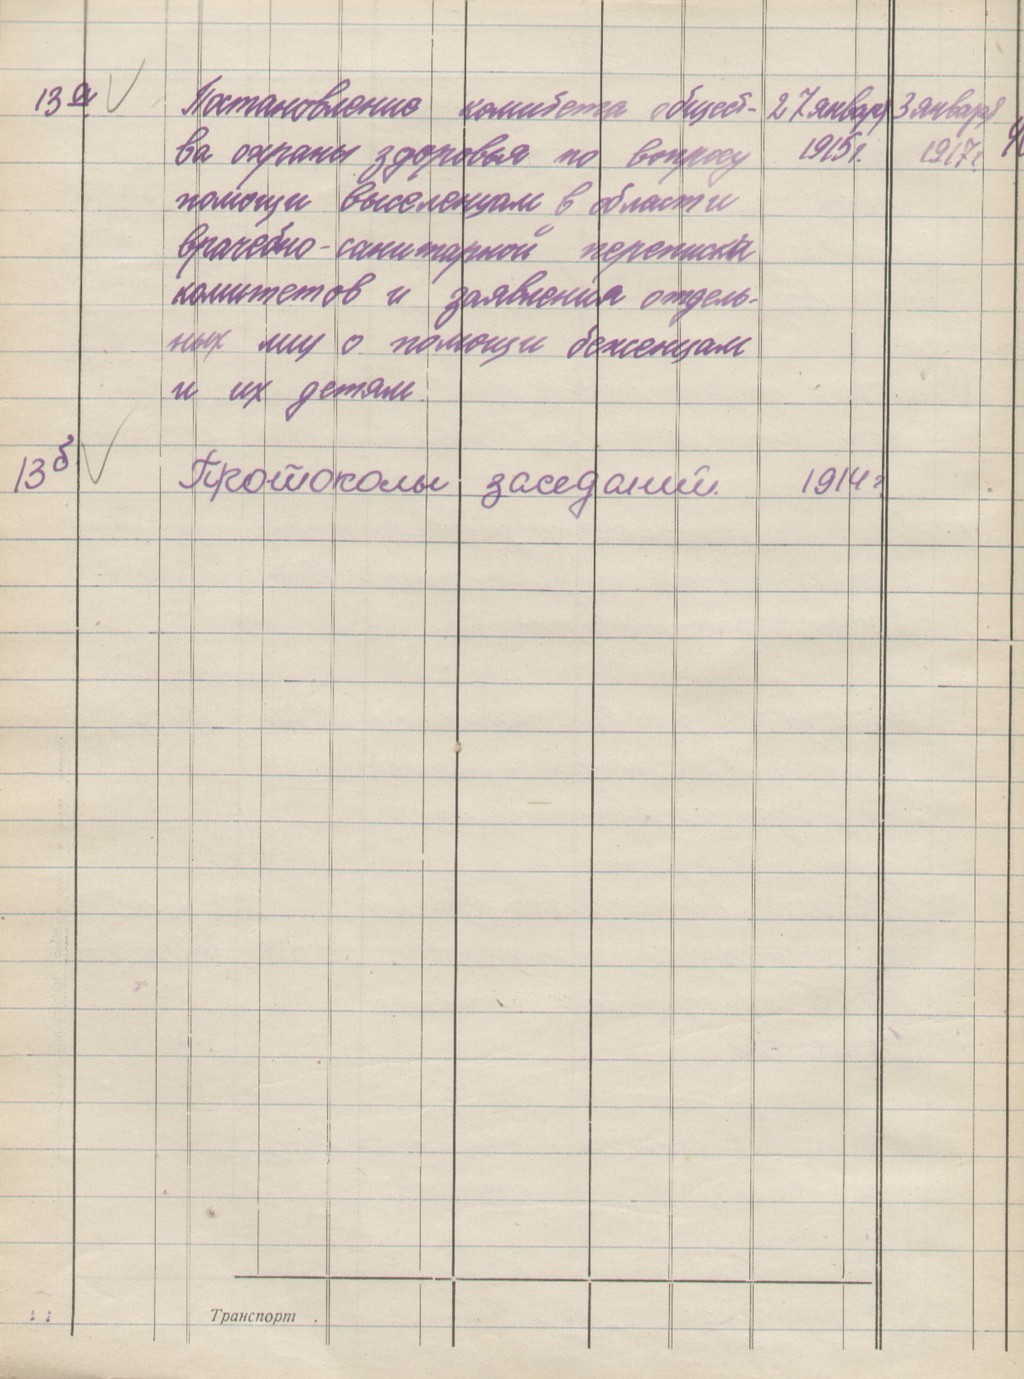 13а Постановление комитета общест- 27 января 3 января
ва охраны здоровья по вопросу 1915 г. 1917 г.
помощи выселенцам в области
врачебно-санитарной переписка
комитетов и заявления отдель-
ных лиц о помощи беженцам
и их детям.
13б Протоколы заседаний. 1914 г.
Транспорт .